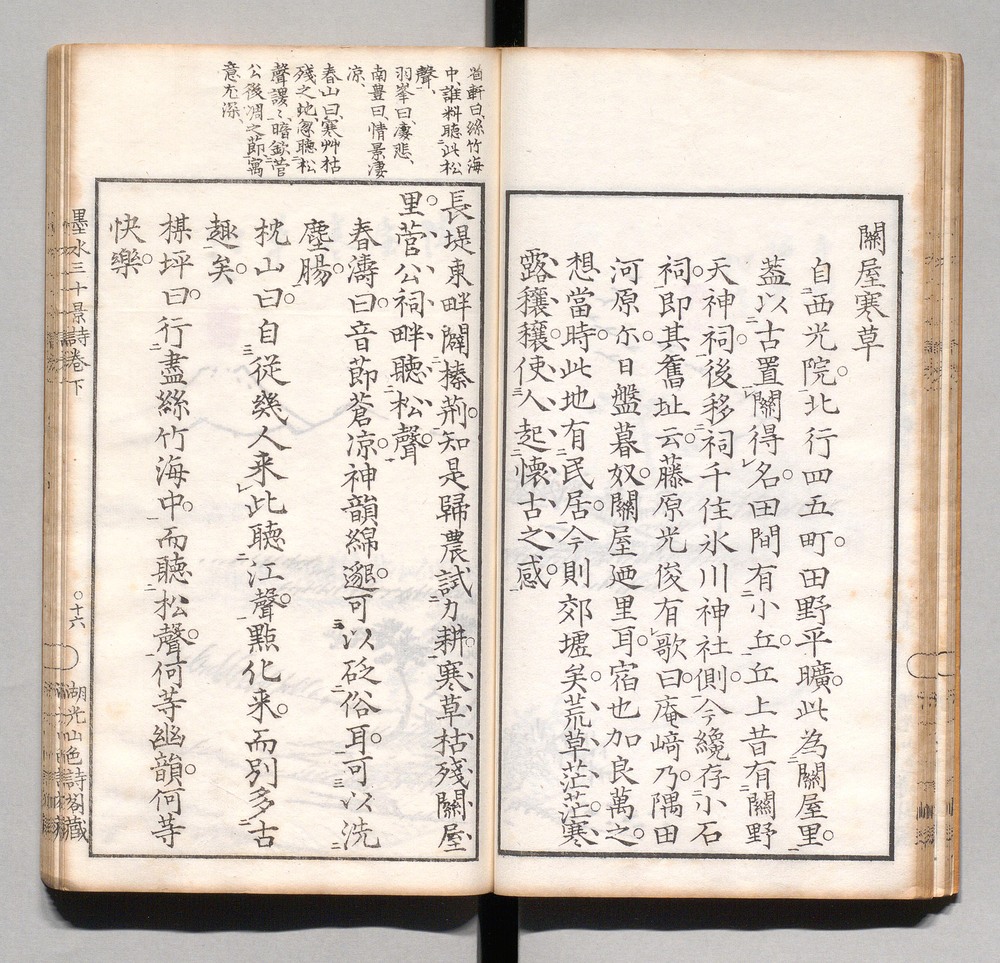 關屋寒草
自西光院北行四五町田野平曠此為關屋里
蓋以古置關得名田間有小丘丘上昔有關野
天神祠後移祠千住氷川神社側今纔存小石
祠即其舊址云藤原光俊有歌曰庵﨑乃隅田
河原尓日盤暮奴關屋廼里耳宿也加良萬之
想當時此地有民居今則郊墟矣荒草茫茫寒
露穰穰使人起懐古之感
省軒曰絲竹海
中誰料聽此松
聲
羽峯曰凄悲
南豊曰情景凄
凉
春山曰寒艸枯
殘之地忽聽松
聲謖々瞻欽菅
公後凋之節寓
意尤深
長堤東畔闢榛荊知是歸農試力耕寒草枯殘關屋
里菅公祠畔聽松聲
春濤曰音節蒼凉神韻綿邈可以砭俗耳可以洗
塵腸
枕山曰自從幾人来此聽江聲點化来而別多古
趣矣
棋坪曰行盡絲竹海中而聽松聲何等幽韻何等
快樂
墨水三十景詩卷下
十六
湖光山色詩閣藏